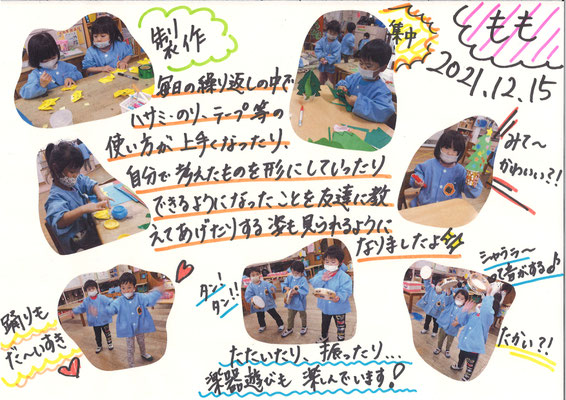 もも
2021.12.15
製作
集中
毎日の繰り返しの中で
ハサミ・のり、テープ等の
使い方が上手くなったり、
自分で考えたものを形にしていったり
できるようになったことを友達に教
えてあげたりする姿も見られるように
なりましたよ
みて〜
かわいい?!
踊りも
だ〜いすき
タン!
タン!!
シャララ〜
って音がするよ♪
たかい?!
たたいたり、振ったり…
楽器遊びも楽しんでいます!